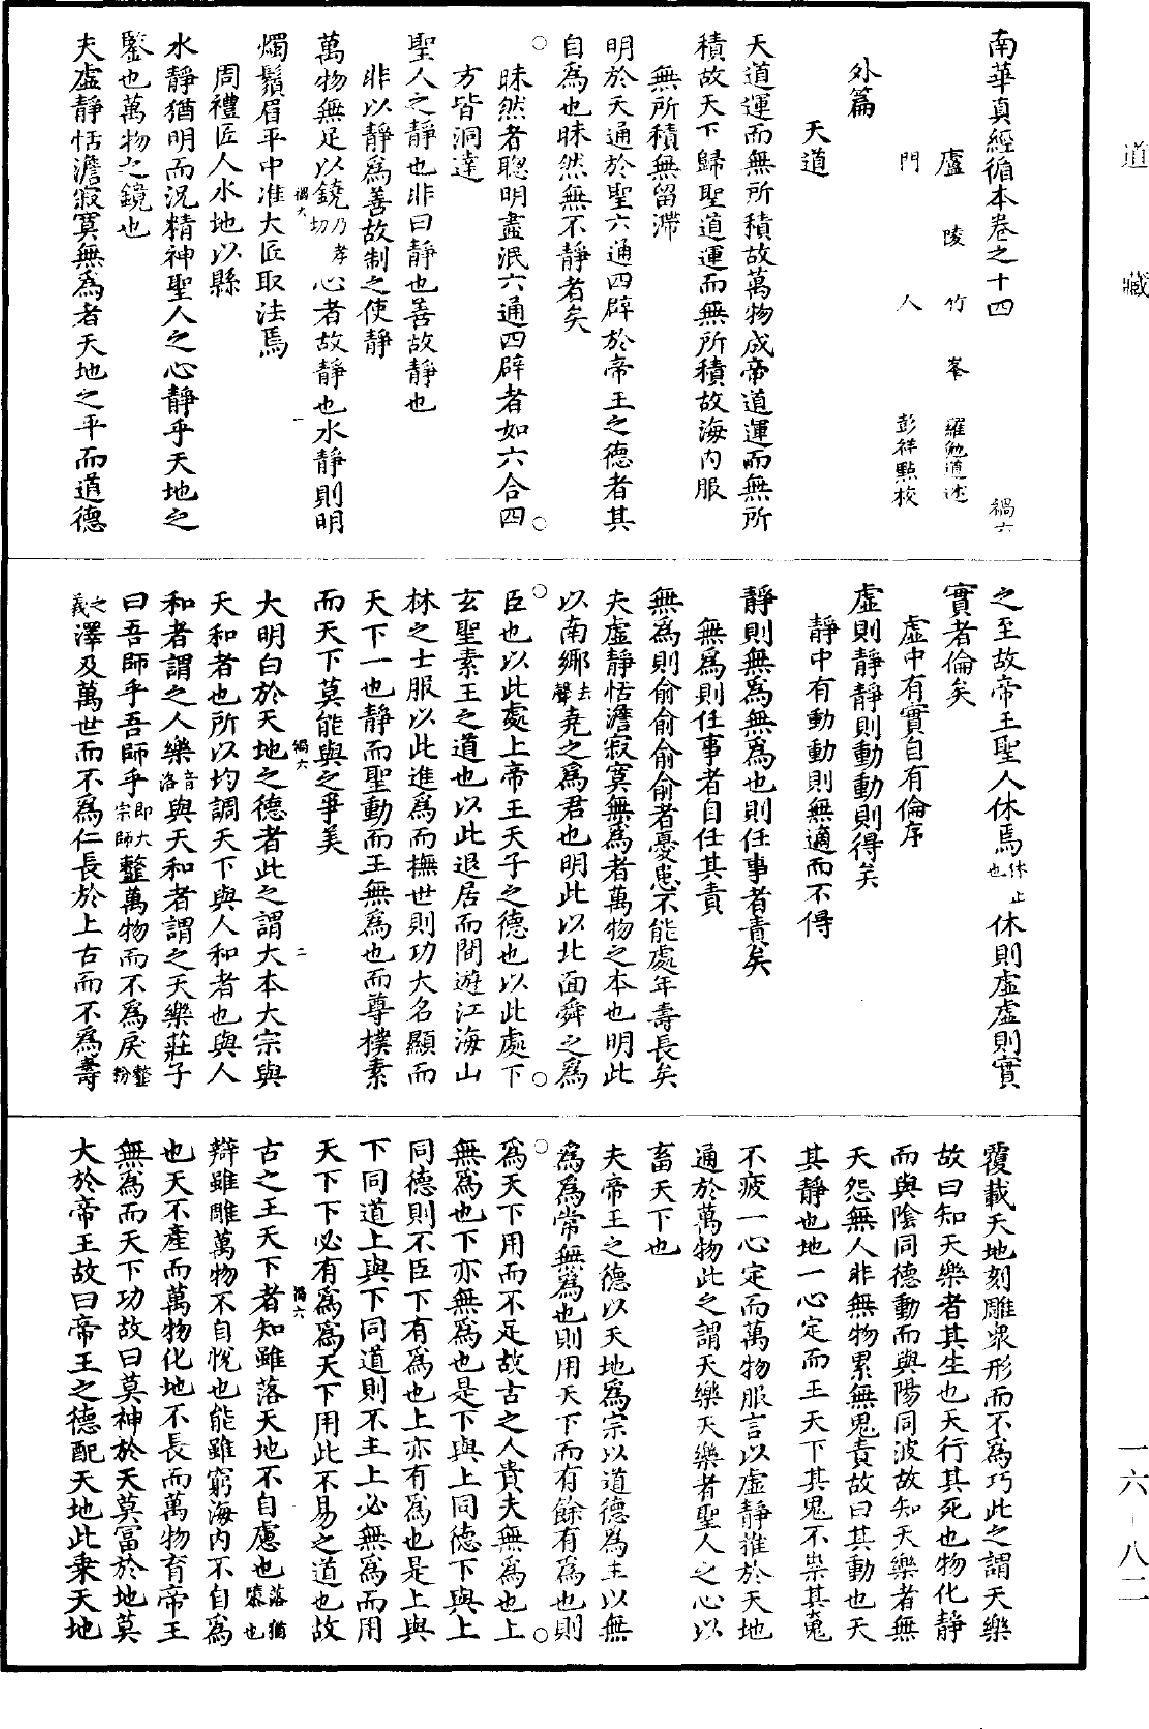 道藏
南華真經循本卷之十四 禍六
廬陵竹峯羅勉道述
門人彭祥點校
外篇
天道
天道運而無所積故萬物成帝道運而無所
積故天下歸聖道運而無所積故海內服
無所積無留滯
明於天通於聖六通四辟於帝王之德者其
自為也昧然無不靜者矣
昧然者聰明盡泯六通四辟者如六合四
方皆洞達
聖人之靜也非曰靜也善故靜也
非以靜為善故制之使靜
萬物無足以鐃乃孝切心者故靜也水靜則明
禍六 一
燭鬚眉平中准大匠取法焉
周禮匠人水地以縣
水靜猶明而況精神聖人之心靜乎天地之
鑒也萬物之鏡也
夫虛靜恬澹寂寞無為者天地之平而道德
之至故帝王聖人休焉休止也休則虛虛則實
實者倫矣
虛中有實自有倫序
虛則靜靜則動動則得矣
靜中有動動則無適而不得
靜則無為無為也則任事者責矣
無為則任事者自任其責
無為則俞俞俞俞者憂患不能處年壽長矣
夫虛靜恬澹寂寞無為者萬物之本也明此
以南鄉去聲堯之為君也明此以北面舜之為
臣也以此處上帝王天子之德也以此處下
玄聖素王之道也以此退居而閒遊江海山
林之士服以此進為而撫世則功大名顯而
天下一也靜而聖動而王無為也而尊樸素
而天下莫能與之爭美
禍六 二
大明白於天地之德者此之謂大本大宗與
天和者也所以均調天下與人和者也與人
和者謂之人樂音洛與天和者謂之天樂莊子
曰吾師乎吾師乎即大宗師𩐋萬物而不為戾𩐋粉
之義澤及萬世而不為仁長於上古而不為壽
覆載天地刻雕衆形而不為巧此之謂天樂
故曰知天樂者其生也天行其死也物化靜
而與陰同德動而與陽同波故知天樂者無
天怨無人非無物累無鬼責故曰其動也天
其靜也地一心定而王天下其鬼不祟其䰟
不疲一心定而萬物服言以虛靜推於天地
通於萬物此之謂天樂天樂者聖人之心以
畜天下也
夫帝王之德以天地為宗以道德為主以無
為為常無為也則用天下而有餘有為也則
為天下用而不足故古之人貴夫無為也上
無為也下亦無為也是下與上同德下與上
同德則不臣下有為也上亦有為也是上與
下同道上與下同道則不主上必無為而用
天下下必有為為天下用此不易之道也故
禍六
古之王天下者知雖落天地不自慮也落猶也
辯雖雕萬物不自悅也能雖窮海內不自為
也天不產而萬物化地不長而萬物育帝王
無為而天下功故曰莫神於天莫富於地莫
大於帝王故曰帝王之德配天地此乘天地
一六－八二